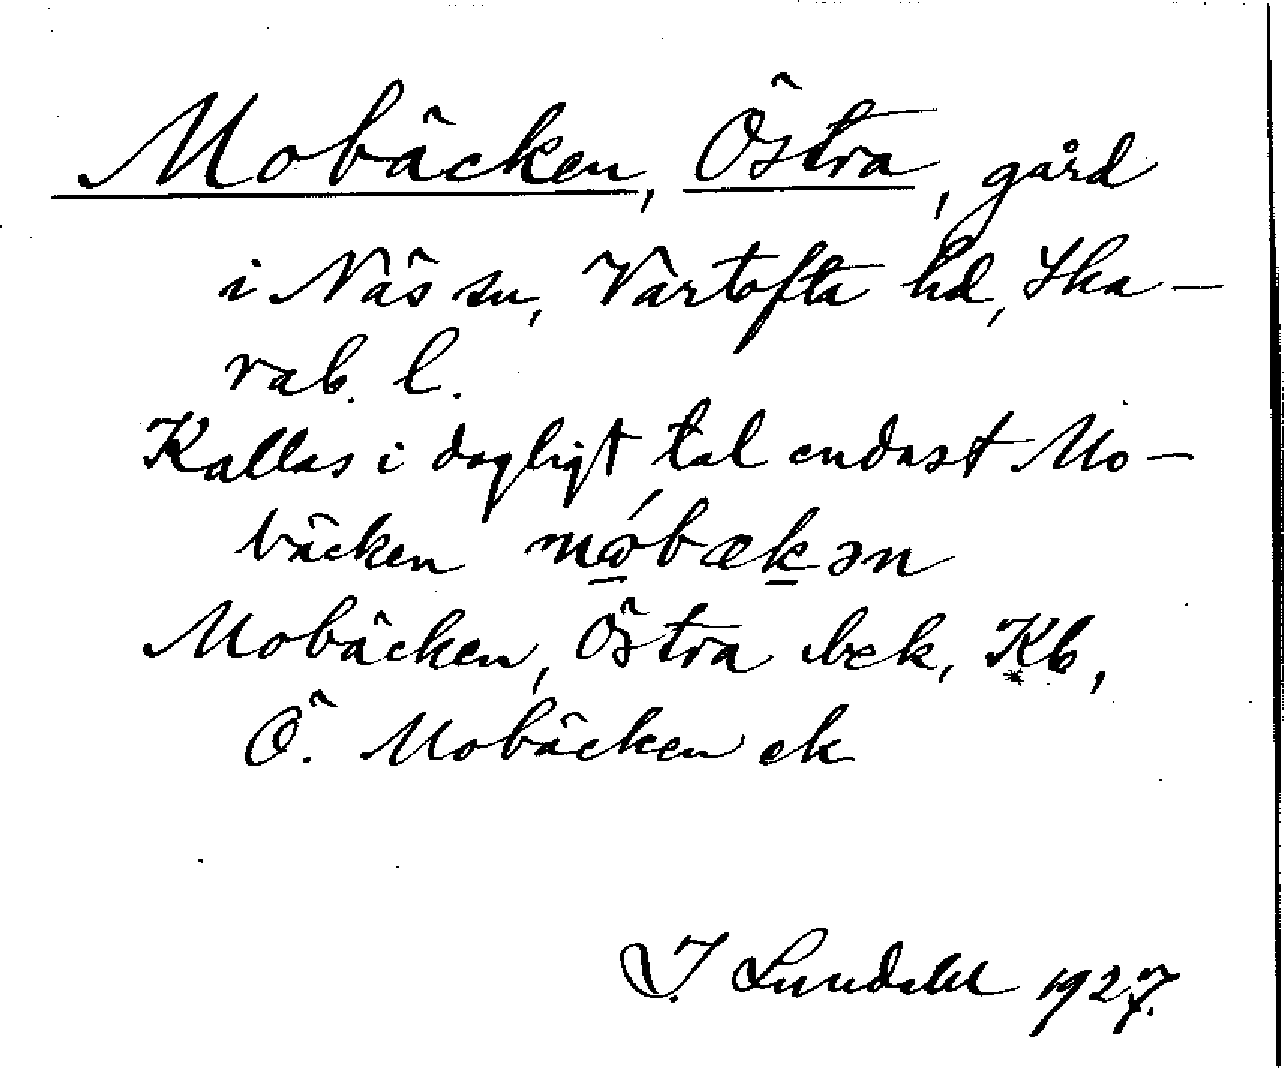 Mobäcken, Östra, gård
i Näs sn, Vartofta hd, Ska-
rab. l.
Kallas i dagligt tal endast Mo-
bäcken mó̲bæk̲ən
Mobäcken, Östra bek, Kb,
Ö. Mobäcken ek
I. Lundahl 1927.